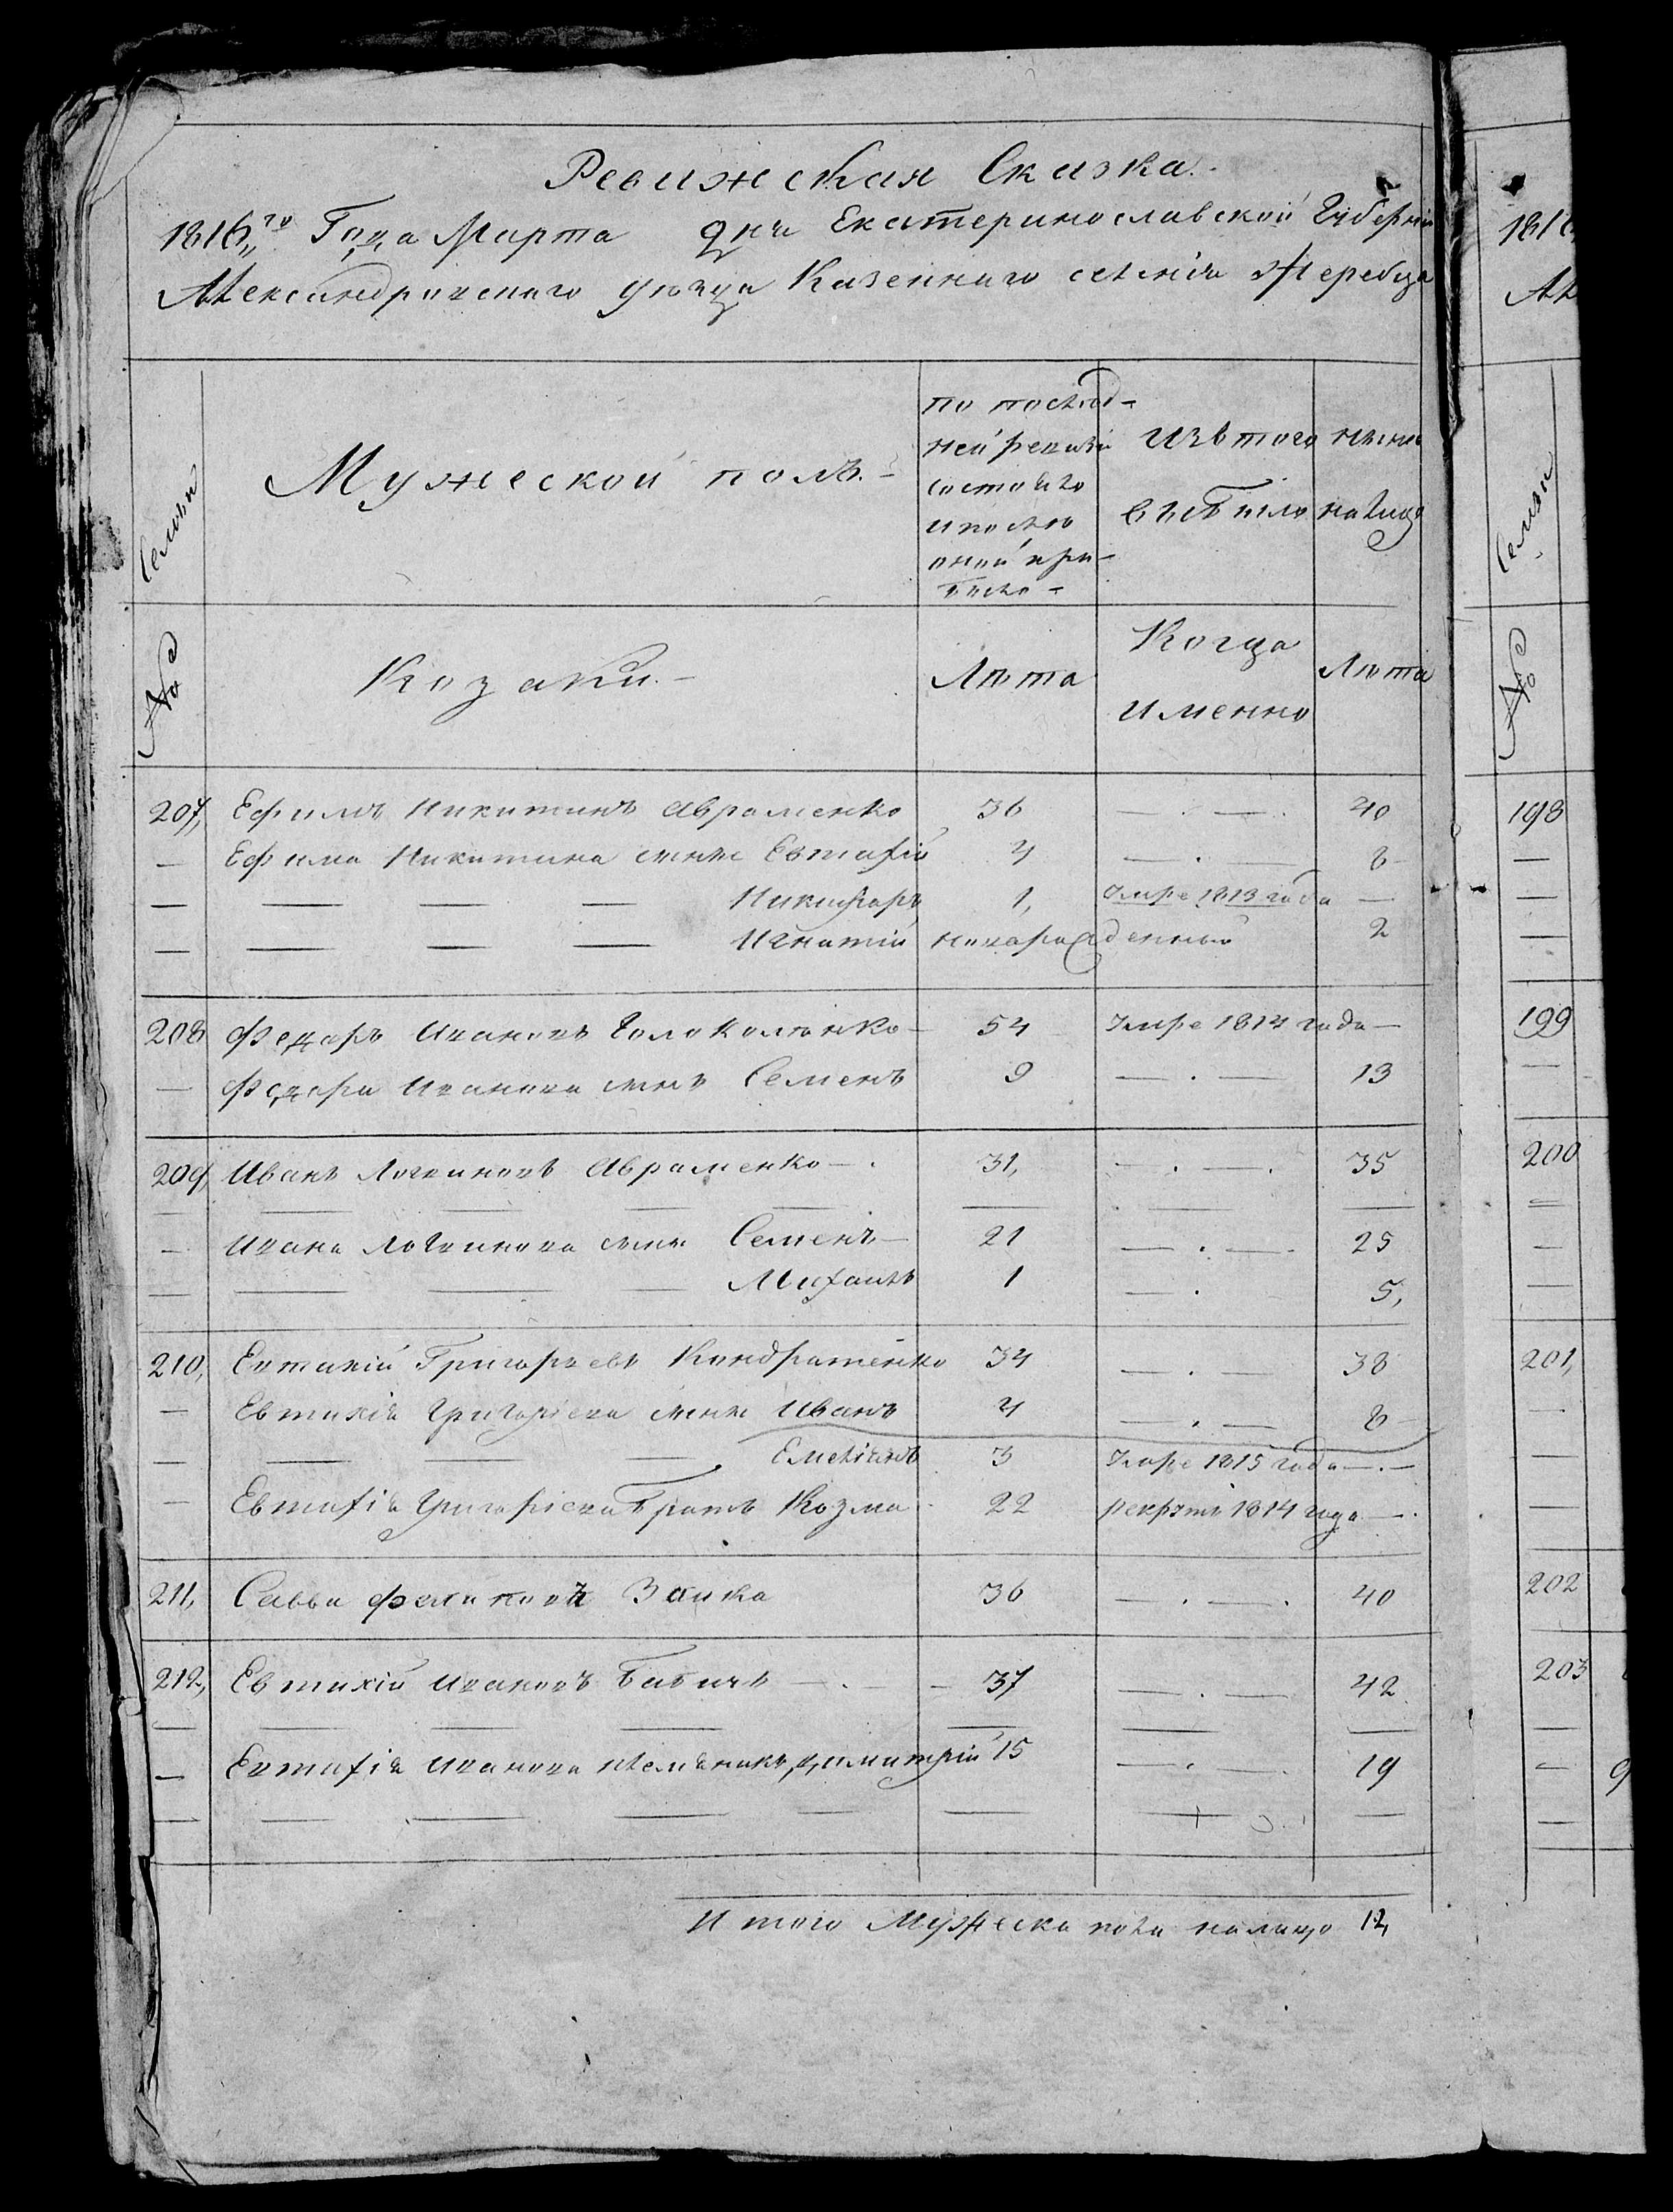 Ревижская Сказка.
1816,,го Года Марта дня Екатеринославской Губерніи
Александровскаго уѣзда Казеннаго селенія Жеребца
№ Семьи
Мужеской полъ. –
по послѣд–
ней ревизіи
состояло
и послѣ
оной при–
было –
Изъ того
выбыло
нынѣ
на лицо
Козаки. –
Лѣта
Когда
именно
Лѣта
207, Ефимъ Никитинъ Авраменко 36 — . — . 40
— Ефима Никитина сынъ Евтафій 4 — . — 8
— — — — Никифоръ 1, умре 1813 года —
— — — — Игнатій новорожденный 2
208 Федоръ Ивановъ Голоколѣнко — 54 умре 1814 года —
— Федора Иванова сынъ Семенъ 9 — . — 13
209, Иванъ Логвиновъ Авраменко — . 31, — . — . 35
— Ивана Логвинова сынъ Семенъ — 21 — . — . 25
— — — — Михаилъ 1 — . 5,
210, Евтихій Григорьевъ Кондратенко 34 — . — 38
— Евтихія Григоріева сынъ Иванъ 4 — . — 8
— — — — Емеліянъ 3 умре 1815 года — . —
— Евтихія Григоріева братъ Козма 22 рекрутъ 1814 года — .
211, Савва Филиповъ Заика 36 — . — . 40
212, Евтихій Ивановъ Бабичъ — . — 37 — . — 42
— Евтихія Иванова племяникъ Димитрій 15 — . — . 19
Итого Мужеска пола налицо 12,
1816
Ал
№ Семьи
198
199
200
201,
202
203